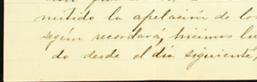 mitido la apelación de los
según recordará, hicimos lu
do desde el día siguiente,